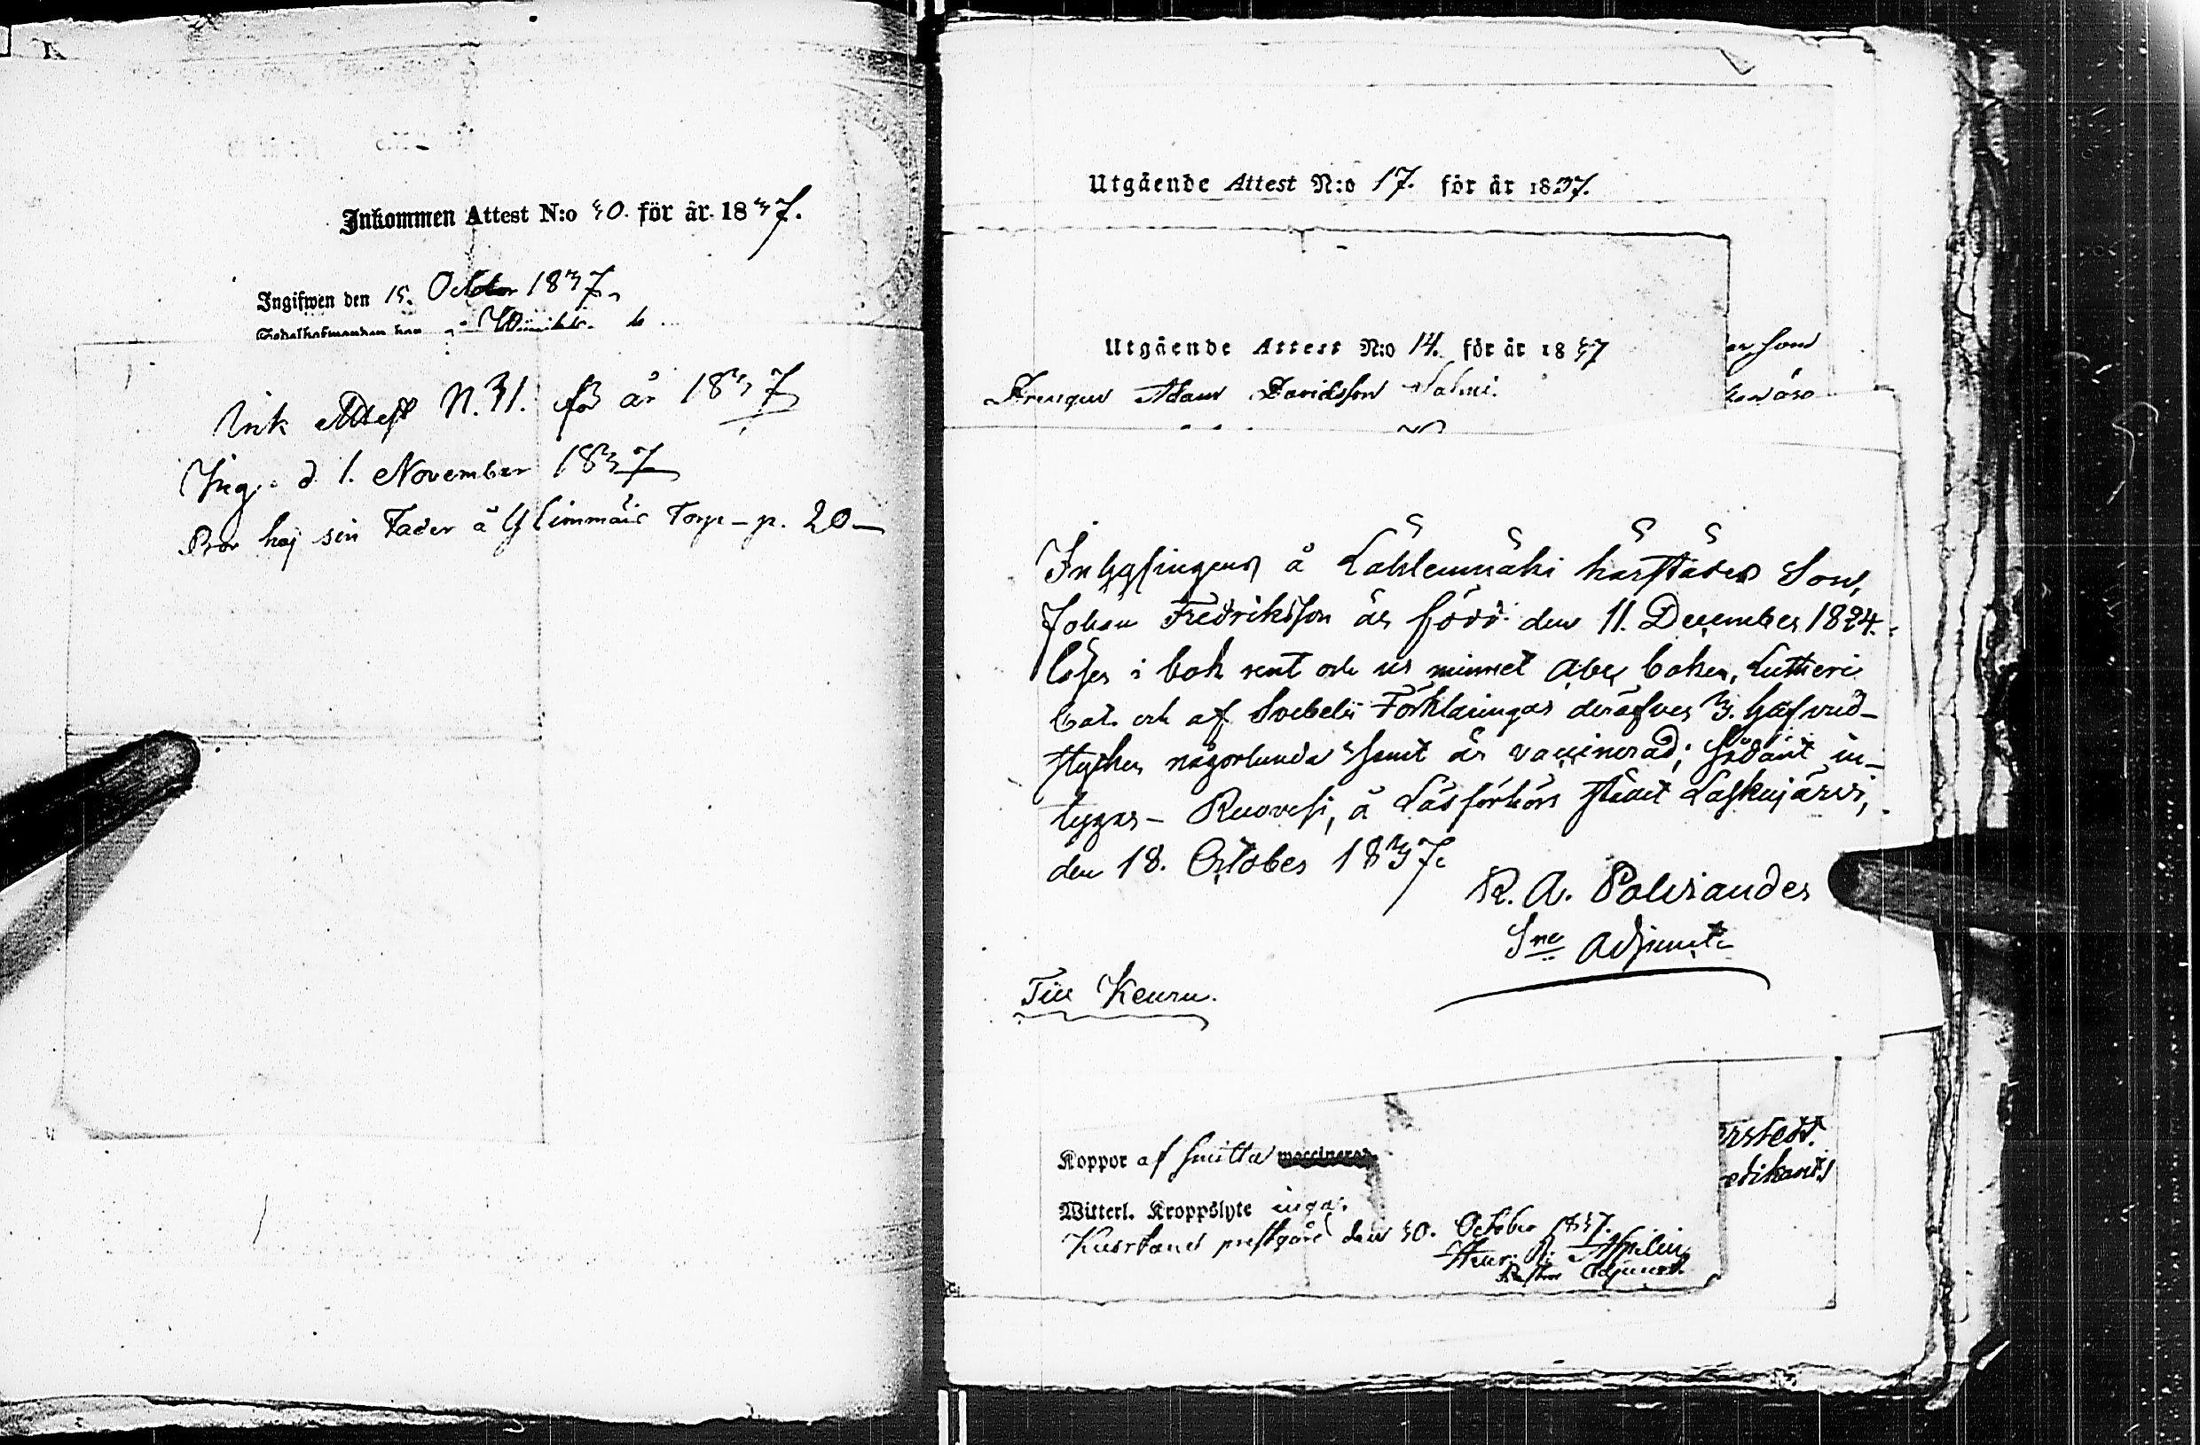 Inkommen Attest N:o 30. för år 1837.
Ingifwen den 15. October 1837.
Ink Attest N. 31. för år 1837
Ing. d. 1. November 1837
Bor hos sin Fader å Torp – p. 20 –
Utgående Attest N:o 17. för år 1837.
Utgående Attest N:o 14. för år 1837
Drengen Adam Davidsson Salmi.
Inhysingens å härstädes Son,
Johan Fredriksson är född den 11. December 1824.
läser i bok rent och ur minnet abc boken, Lutheri
cat. och af Svebelii Förklaringar deröfver 3. hufvud-
stycken någorlunda samt är vaccinerad; sådant in-
tygas – Ruovesi, å Läsförhörs stället
den 18. October 1837.
R. A. Polviander
Sne Adjunct.
Till Keuru.
Koppor af smitta
Witterl. Kroppslyte inga.
prestgård den 30. October 1837.
Adjunct.